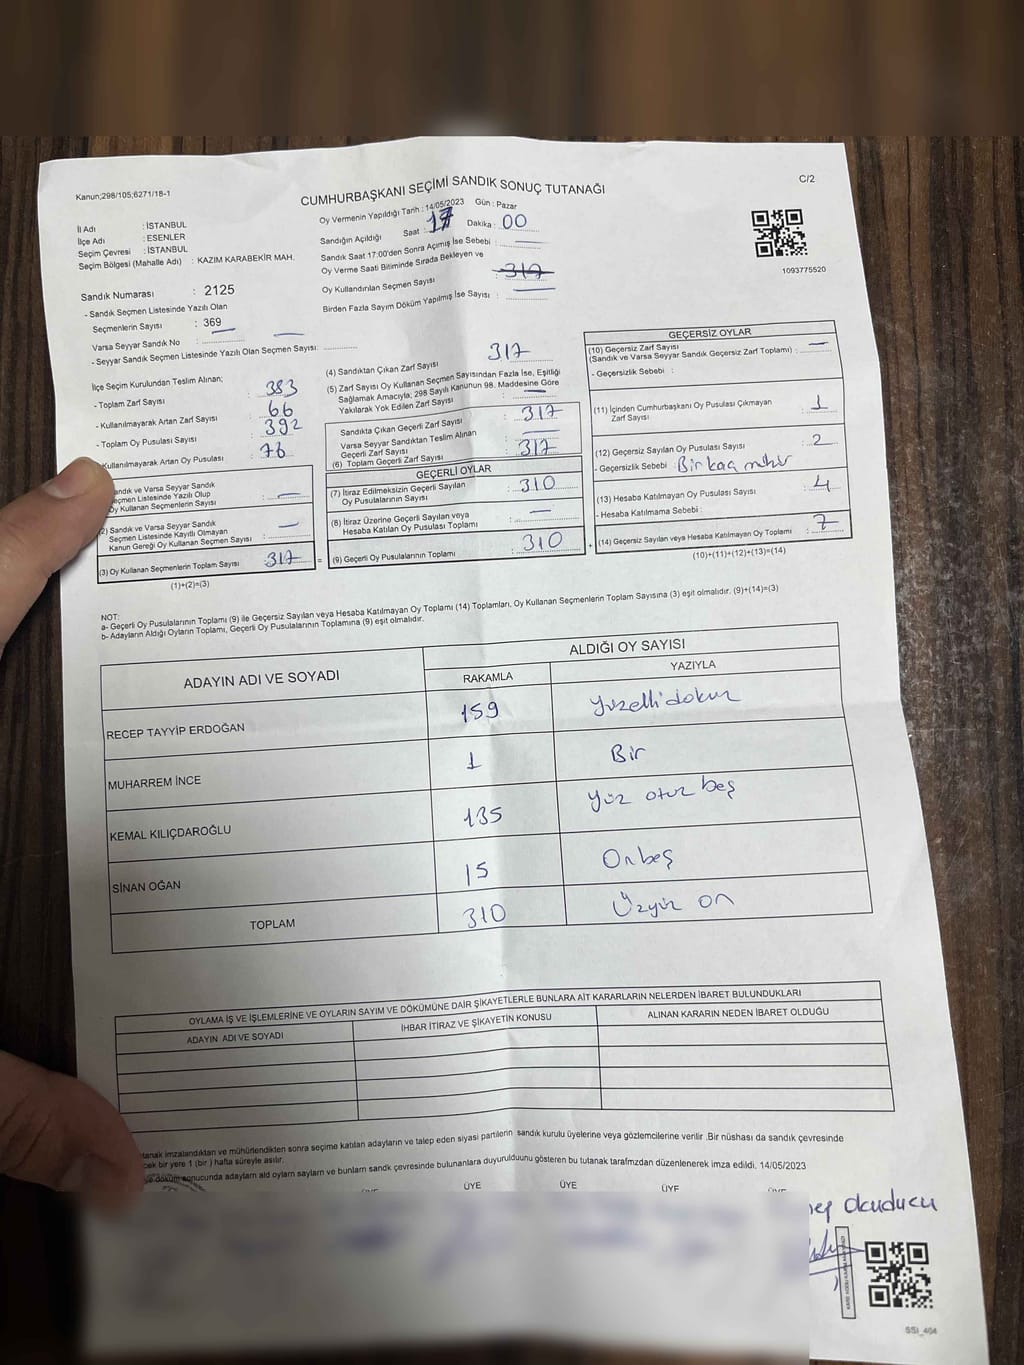 Kanun;298/105;6271/18-1
C/2
CUMHURBAŞKANI SEÇİMİ SANDIK SONUÇ TUTANAĞI
Oy Vermenin Yapıldığı Tarih : 14/05/2023 Gün : Pazar
Sandığın Açıldığı Saat : 17 Dakika : 00
Sandık Saat 17:00'den Sonra Açımış İse Sebebi : —
Oy Verme Saati Bitiminde Sırada Bekleyen ve
Oy Kullandırılan Seçmen Sayısı : 317
Birden Fazla Sayım Döküm Yapılmış İse Sayısı : —
1093775520
İl Adı : İSTANBUL
İlçe Adı : ESENLER
Seçim Çevresi : İSTANBUL
Seçim Bölgesi (Mahalle Adı) : KAZIM KARABEKİR MAH.
Sandık Numarası : 2125
- Sandık Seçmen Listesinde Yazılı Olan
Seçmenlerin Sayısı : 369
Varsa Seyyar Sandık No : —
- Seyyar Sandık Seçmen Listesinde Yazılı Olan Seçmen Sayısı: —
İlçe Seçim Kurulundan Teslim Alınan;
- Toplam Zarf Sayısı : 383
- Kullanılmayarak Artan Zarf Sayısı : 66
- Toplam Oy Pusulası Sayısı : 392
Kullanılmayarak Artan Oy Pusulası : 76
andık ve Varsa Seyyar Sandık
eçmen Listesinde Yazılı Olup
Oy Kullanan Seçmenlerin Sayısı : —
(2) Sandık ve Varsa Seyyar Sandık
Seçmen Listesinde Kayıtlı Olmayan
Kanun Gereği Oy Kullanan Seçmen Sayısı : —
(3) Oy Kullanan Seçmenlerin Toplam Sayısı : 317 =
(1)+(2)=(3)
(4) Sandıktan Çıkan Zarf Sayısı : 317
(5) Zarf Sayısı Oy Kullanan Seçmen Sayısından Fazla İse, Eşitliği
Sağlamak Amacıyla; 298 Sayılı Kanunun 98. Maddesine Göre
Yakılarak Yok Edilen Zarf Sayısı : —
Sandıkta Çıkan Geçerli Zarf Sayısı : 317
Varsa Seyyar Sandıktan Teslim Alınan
Geçerli Zarf Sayısı : —
(6) Toplam Geçerli Zarf Sayısı : 317
GEÇERLİ OYLAR
(7) İtiraz Edilmeksizin Geçerli Sayılan
Oy Pusulalarının Sayısı : 310
(8) İtiraz Üzerine Geçerli Sayılan veya
Hesaba Katılan Oy Pusulası Toplamı : —
(9) Geçerli Oy Pusulalarının Toplamı : 310 +
GEÇERSİZ OYLAR
(10) Geçersiz Zarf Sayısı
(Sandık ve Varsa Seyyar Sandık Geçersiz Zarf Toplamı) : —
- Geçersizlik Sebebi :
(11) İçinden Cumhurbaşkanı Oy Pusulası Çıkmayan
Zarf Sayısı : 1
(12) Geçersiz Sayılan Oy Pusulası Sayısı : 2
- Geçersizlik Sebebi : Bir kaç mühür
(13) Hesaba Katılmayan Oy Pusulası Sayısı : 4
- Hesaba Katılmama Sebebi :
(14) Geçersiz Sayılan veya Hesaba Katılmayan Oy Toplamı : 7
(10)+(11)+(12)+(13)=(14)
NOT:
a- Geçerli Oy Pusulalarının Toplamı (9) ile Geçersiz Sayılan veya Hesaba Katılmayan Oy Toplamı (14) Toplamları, Oy Kullanan Seçmenlerin Toplam Sayısına (3) eşit olmalıdır. (9)+(14)=(3)
b- Adayların Aldığı Oyların Toplamı, Geçerli Oy Pusulalarının Toplamına (9) eşit olmalıdır.
ADAYIN ADI VE SOYADI ALDIĞI OY SAYISI
RAKAMLA YAZIYLA
RECEP TAYYİP ERDOĞAN 159 Yüzellidokuz
MUHARREM İNCE 1 Bir
KEMAL KILIÇDAROĞLU 135 Yüz otuz beş
SİNAN OĞAN 15 Onbeş
TOPLAM 310 Üzyüz on
OYLAMA İŞ VE İŞLEMLERİNE VE OYLARIN SAYIM VE DÖKÜMÜNE DAİR ŞİKAYETLERLE BUNLARA AİT KARARLARIN NELERDEN İBARET BULUNDUKLARI
ADAYIN ADI VE SOYADI İHBAR İTİRAZ VE ŞİKAYETİN KONUSU ALINAN KARARIN NEDEN İBARET OLDUĞU
tanak imzalandıktan ve mühürlendikten sonra seçime katılan adayların ve talep eden siyasi partilerin sandık kurulu üyelerine veya gözlemcilerine verilir .Bir nüshası da sandık çevresinde
cek bir yere 1 (bir ) hafta süreyle asılır.
ve döküm sonucunda adayların ald oyların sayları ve bunların sandk çevresinde bulunanlara duyurulduunu gösteren bu tutanak tarafmzdan düzenlenerek imza edildi. 14/05/2023
ÜYE ÜYE ÜYE ÜYE
Okuducu
SSİ_404